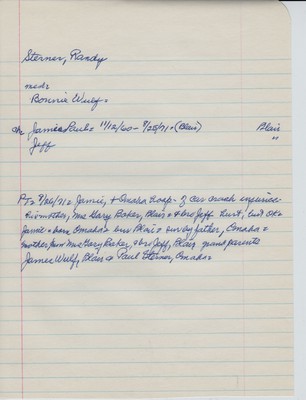 Sterner, Randy
md:
Bonnie Wulf:
ch Jamie Paul: 11/12/60 - 9/25/71: (Blair) Blair
Jeff "
PT: 9/26/71: Jamie, + Omaha hosp - of car crash injuries
his mother, Mrs Gary Baker, Blair & bro Jeff hurt; but OK:
Jamie: born Omaha: bur Blair: surv by father, Omaha:
mother, Mrs Gary Baker, & bro Jeff, Blair grandparents
James Wulf, Blair & Paul Sterner, Omaha: